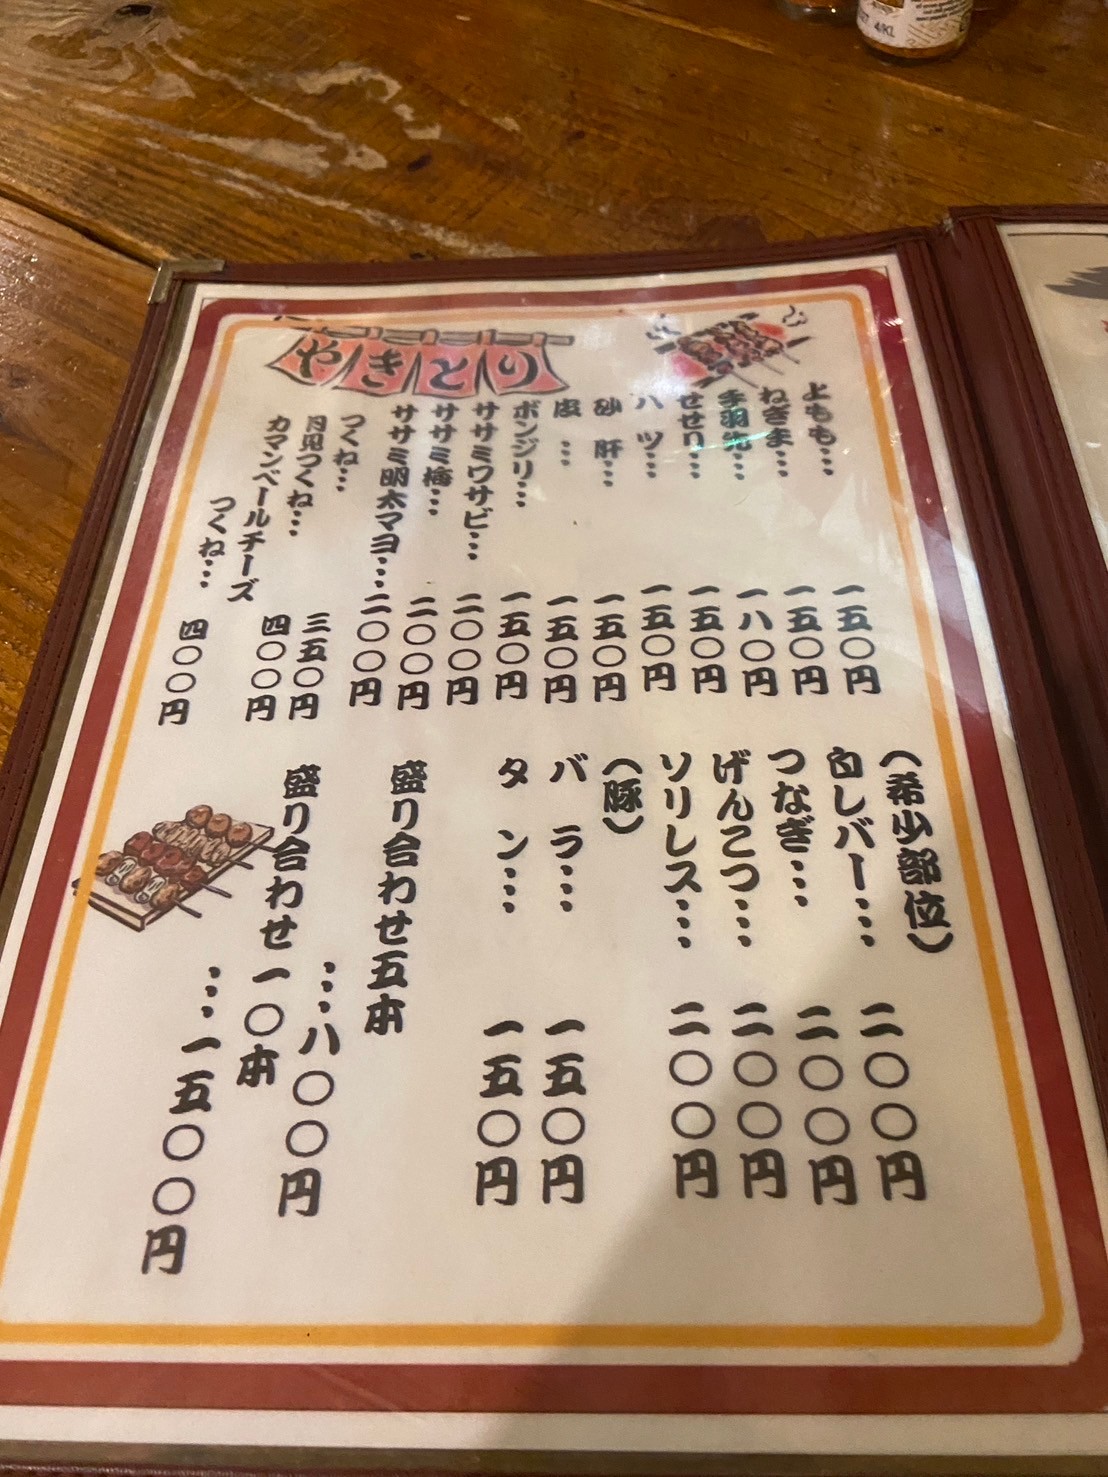 やきとり
上もも…一五〇円
ねぎま…一五〇円
手羽先…一八〇円
せせり…一五〇円
ハツ…一五〇円
砂肝…一五〇円
皮…一五〇円
ボンジリ…一五〇円
ササミワサビ…二〇〇円
ササミ梅…二〇〇円
ササミ明太マヨ…二〇〇円
つくね…三五〇円
月見つくね…四〇〇円
カマンベールチーズ
つくね…四〇〇円
（希少部位）
白レバー…二〇〇円
つなぎ…二〇〇円
げんこつ…二〇〇円
ソリレス…二〇〇円
（豚）
バラ…一五〇円
タン…一五〇円
盛り合わせ五本
…八〇〇円
盛り合わせ一〇本
…一五〇〇円